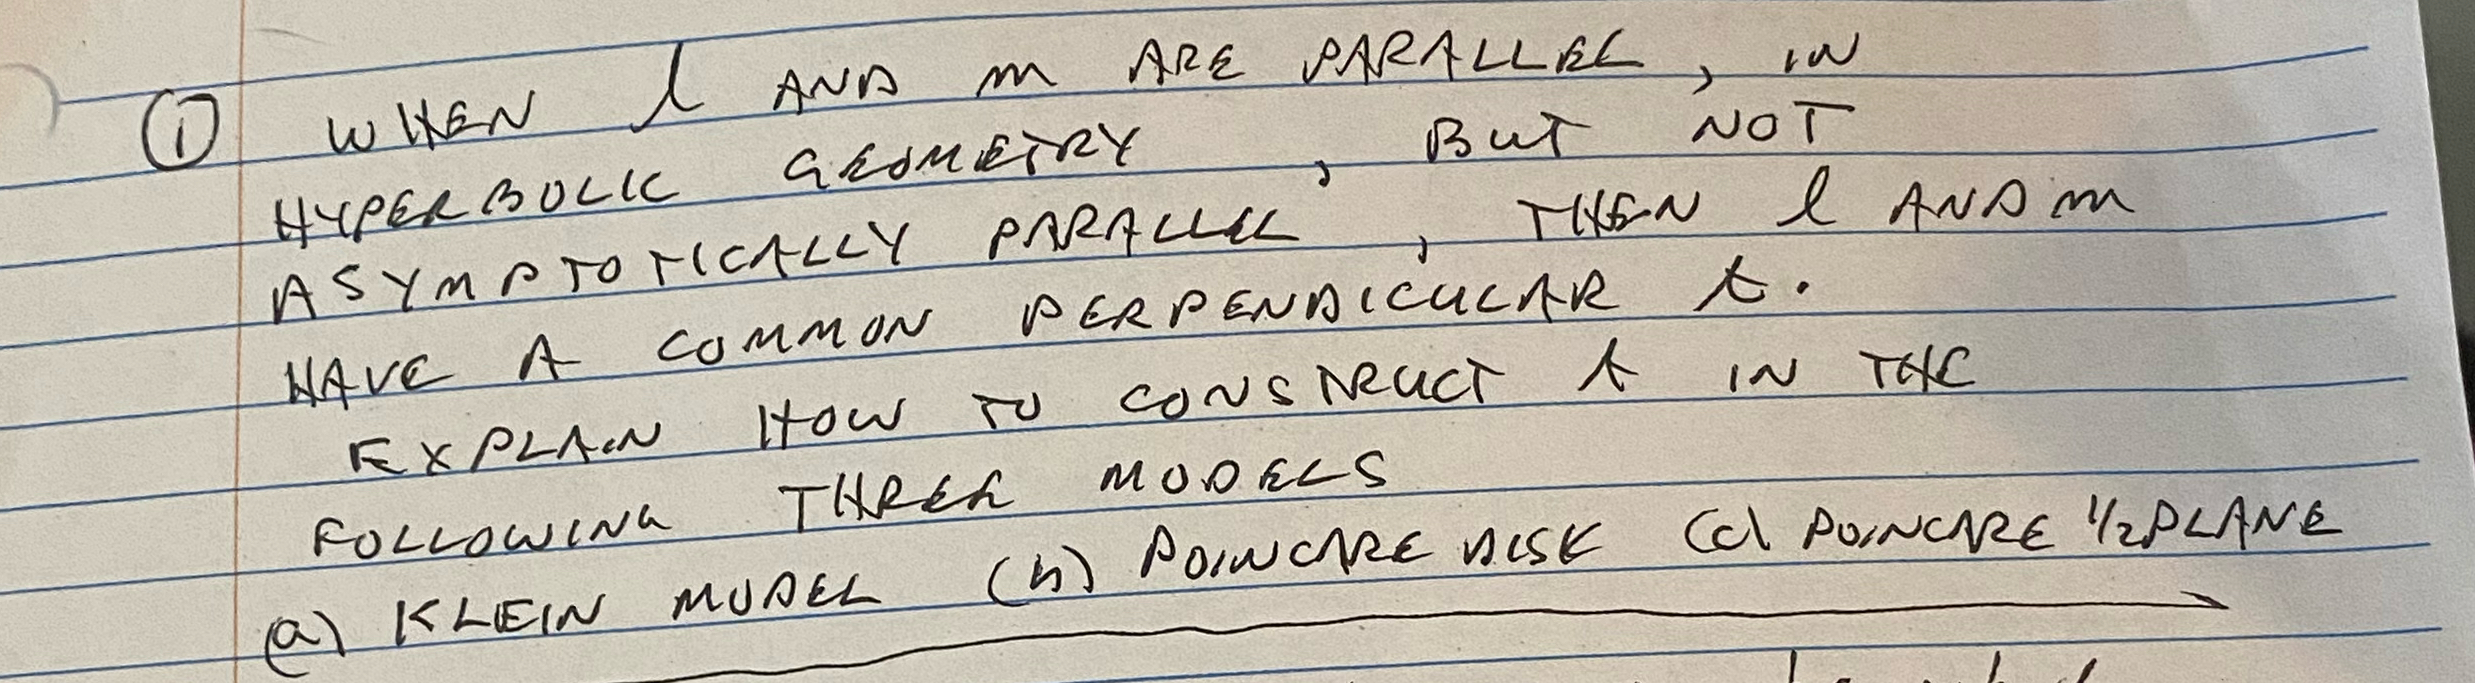 ① WHEN l AND m ARE PARALLEL, IN
HYPERBOLIC GEOMETRY, BUT NOT
ASYMPTOTICALLY PARALLEL, THEN l AND m
HAVE A COMMON PERPENDICULAR t.
EXPLAIN HOW TO CONSTRUCT t IN THE
FOLLOWING THREE MODELS
(a) KLEIN MODEL (b) POINCARE DISK (c) POINCARE 1/2 PLANE